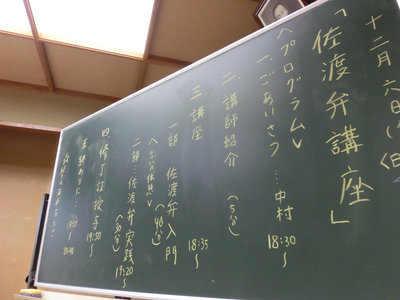 十二月六日(
「佐渡弁講座」
〈プログラム〉
一、ごあいさつ…中村
18:30〜
二、講師紹介 (5分)
三、講座 18:35〜
一部 佐渡弁入門 (40分)
〈5分休憩〉
二部…佐渡弁実践 (30分) 19:20〜
四、修了証授与 19:50〜
五、終わりに… 19:55〜